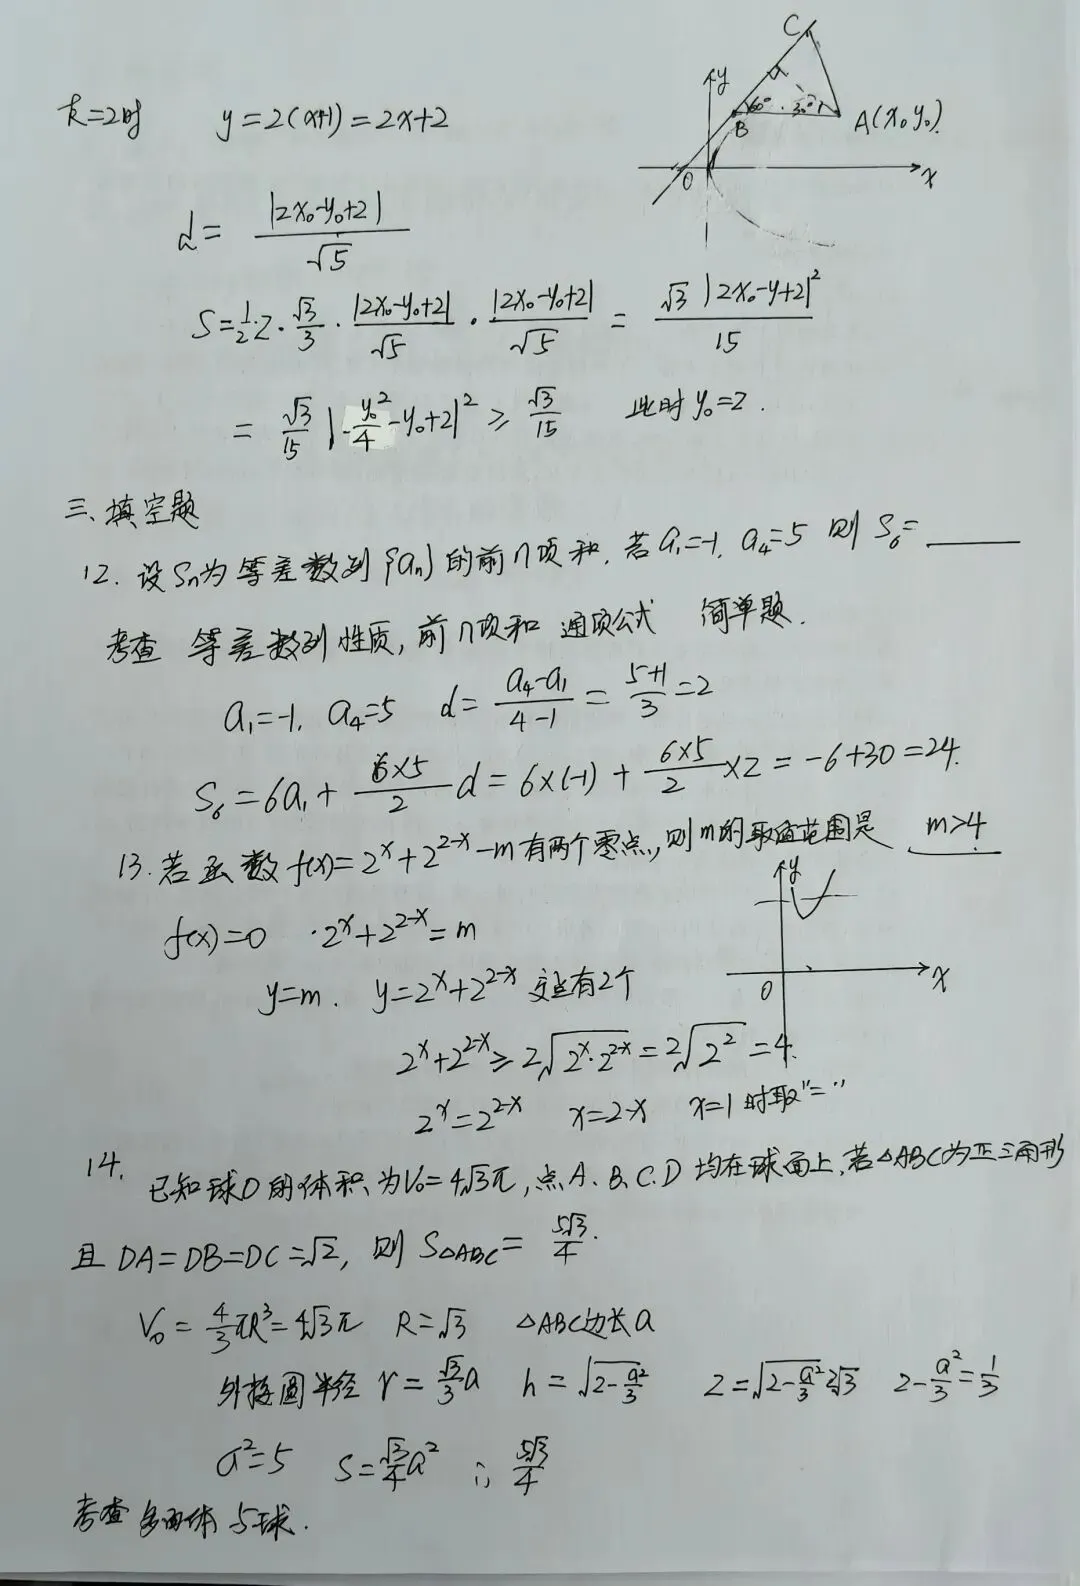 C
y
60° 30°
B
A(x₀ y₀).
O
x
k=2时 y=2(x+1)=2x+2
d= |2x₀-y₀+2| / √5
S=1/2·2·√3/3·|2x₀-y₀+2|/√5·|2x₀-y₀+2|/√5 = √3|2x₀-y+2|²/15
= √3/15 |-y₀²/4-y₀+2|² ≥ √3/15 此时y₀=2.
三、填空题
12. 设Sn为等差数列{an}的前n项和,若a₁=-1, a₄=5 则 S₆=
考查 等差数列性质,前n项和 通项公式 简单题.
a₁=-1, a₄=5 d= (a₄-a₁)/(4-1) = (5+1)/3 =2
S₆=6a₁+ 6×5/2 d=6×(-1)+ 6×5/2 ×2=-6+30=24.
13. 若函数f(x)=2ˣ+2²⁻ˣ-m有两个零点,则m的取值范围是 m>4
y
f(x)=0 ·2ˣ+2²⁻ˣ=m
y=m. y=2ˣ+2²⁻ˣ 交点有2个
O
x
2ˣ+2²⁻ˣ≥2√(2ˣ·2²⁻ˣ)=2√2²=4.
2ˣ=2²⁻ˣ x=2-x x=1时取"="
14. 已知球O的体积为V₀=4√3π,点A、B、C、D均在球面上,若△ABC为正三角形
且 DA=DB=DC=√2, 则 S△ABC= 5√3/4.
V₀= 4/3 πR³=4√3π R=√3 △ABC边长a
外接圆半径 r= √3/3 a h=√(2-a²/3) 2=√(2-a²/3)·2√3 2-a²/3=1/3
a²=5 S= √3/4 a² ∴ 5√3/4
考查多面体与球.